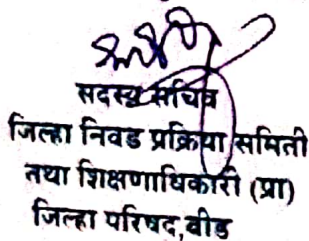 सदस्य सचिव
जिल्हा निवड प्रक्रिया समिती
तथा शिक्षणाधिकारी (प्रा)
जिल्हा परिषद,बीड